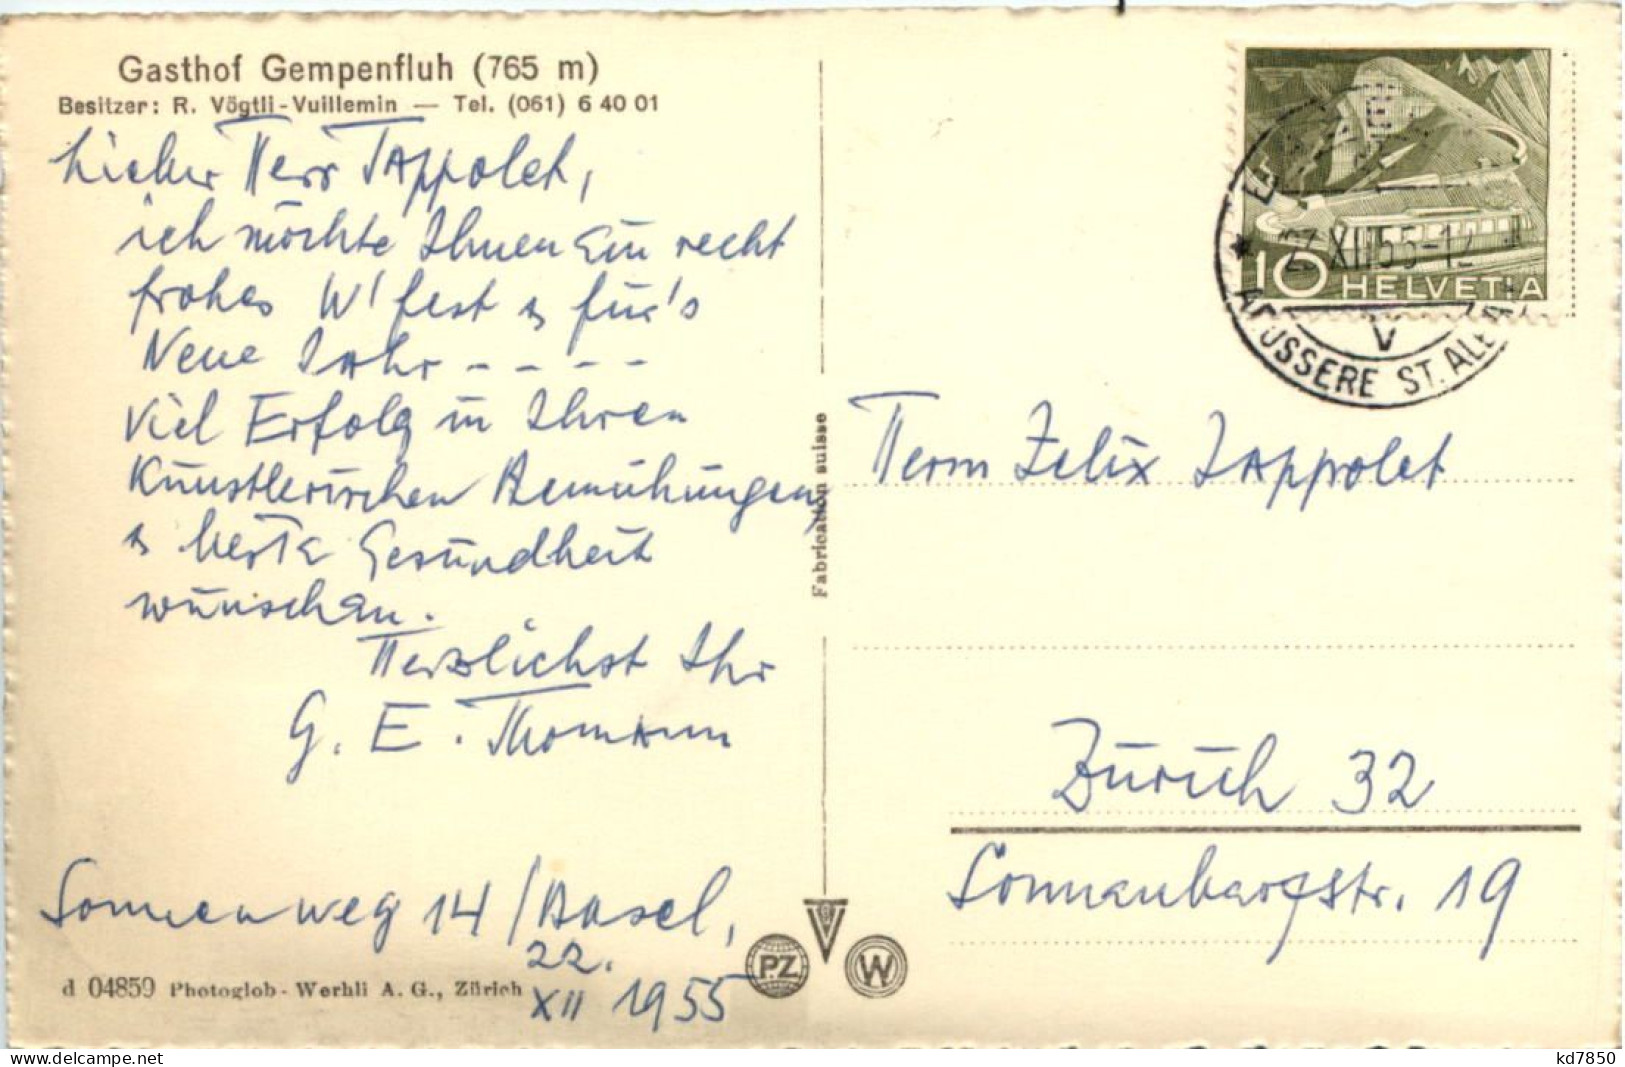 Gasthof Gempenfluh (765 m)
Besitzer: R. Vögtli-Vuillemin — Tel. (061) 6 40 01
Lieber Herr Tappolet,
ich möchte Ihnen ein recht
frohes W'fest & für's
Neue Jahr - - - -
Viel Erfolg in Ihren
Künstlerischen Bemühungen,
& beste Gesundheit
wünschen.
Herzlichst Ihr
G. E. Thomann
Sonnenweg 14 / Basel,
22.
XII 1955
d 04859 Photoglob-Wehrli A. G., Zürich
Fabrication suisse
PZ
W
10 HELVETIA
XII 55-12
V
AEUSSERE ST. ALBAN
Herrn Felix Tappolet
Zürich 32
Sonnenbergstr. 19
kd7850
www.delcampe.net